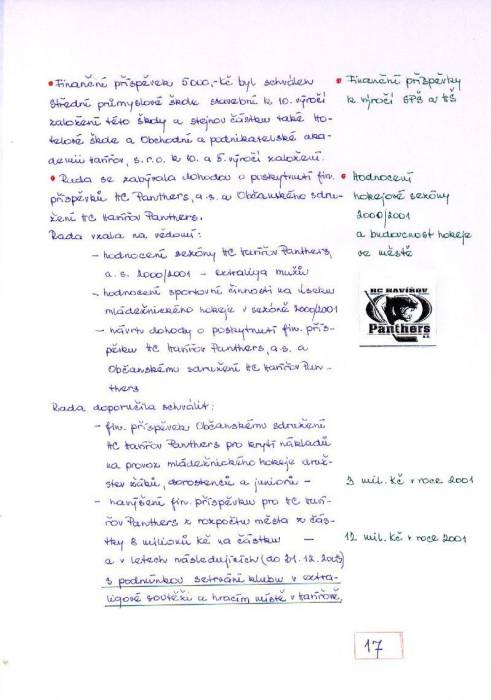 • Finanční příspěvek 5 000,- Kč byl schválen
Střední průmyslové škole stavební k 10. výročí
založení této školy a stejnou částku také Ho-
telové škole a Obchodní a podnikatelské aka-
demii Havířov, s.r.o. k 10. a 5. výročí založení.
• Rada se zabývala dohodou o poskytnutí fin.
příspěvků HC Panthers, a.s. a Občanského sdru-
žení HC Havířov Panthers.
Rada vzala na vědomí:
– hodnocení sezóny HC Havířov Panthers,
a.s. 2000/2001 – extraliga mužů
– hodnocení sportovní činnosti na úseku
mládežnického hokeje v sezóně 2000/2001
– návrh dohody o poskytnutí fin. přís-
pěvku HC Havířov Panthers, a.s. a
Občanskému sdružení HC Havířov Pan-
thers
Rada doporučila schválit:
– fin. příspěvek Občanskému sdružení
HC Havířov Panthers pro krytí nákladů
na provoz mládežnického hokeje druž-
stev žáků, dorostenců a juniorů –
– navýšení fin. příspěvku pro HC Haví-
řov Panthers z rozpočtu města z čás-
tky 8 milionů Kč na částku –
a v letech následujících (do 31.12.2003)
s podmínkou setrvání klubu v extra-
ligové soutěži a hracím místě v Havířově.
• Finanční příspěvky
k výročí SPŠ a HŠ
• Hodnocení
hokejové sezóny
2000/2001
a budoucnost hokeje
ve městě
HC HAVÍŘOV
Panthers
3 mil. Kč v roce 2001
12 mil. Kč v roce 2001
17